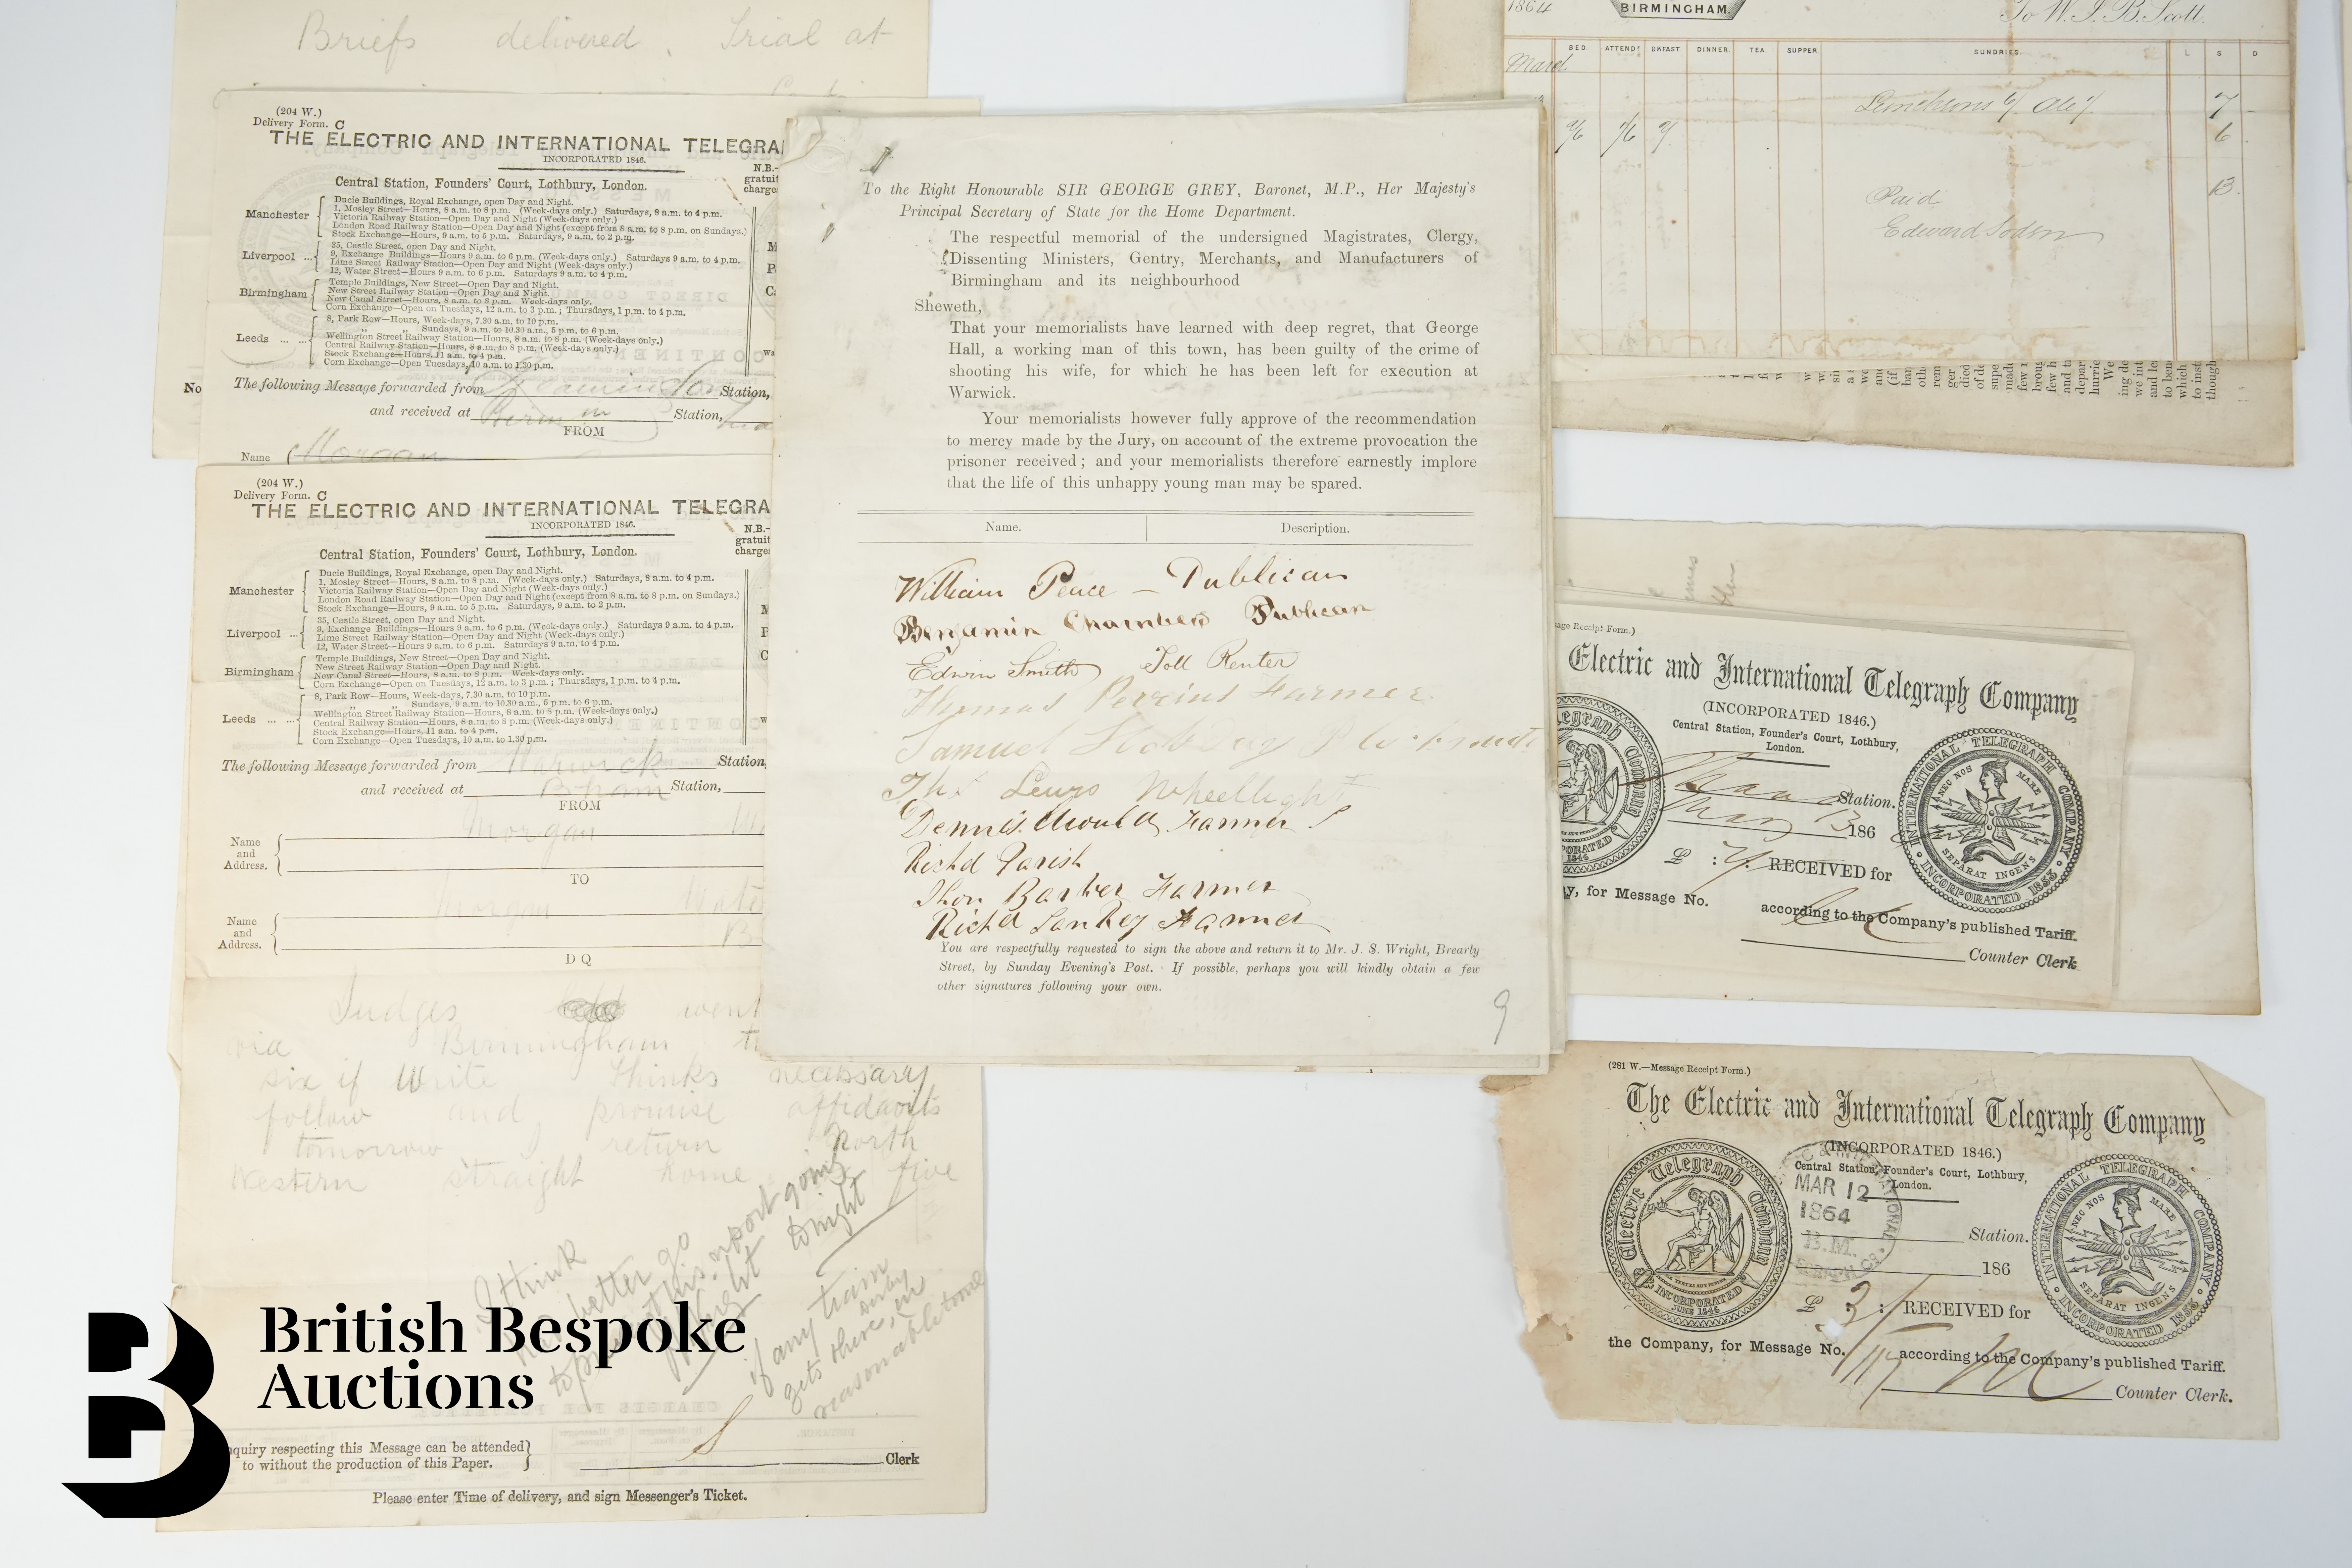 Briefs delivered. Trial at
(204 W.)
Delivery Form. C
THE ELECTRIC AND INTERNATIONAL TELEGRA
INCORPORATED 1846.
Central Station, Founders' Court, Lothbury, London.
N.B.-
gratuit
charge
Manchester
Ducie Buildings, Royal Exchange, open Day and Night.
1, Mosley Street—Hours, 8 a.m. to 8 p.m. (Week-days only.) Saturdays, 8 a.m. to 4 p.m.
Victoria Railway Station—Open Day and Night (Week-days only.)
London Road Railway Station—Open Day and Night (except from 8 a.m. to 8 p.m. on Sundays.)
Stock Exchange—Hours, 9 a.m. to 5 p.m. Saturdays, 9 a.m. to 2 p.m.
Liverpool ...
35, Castle Street, open Day and Night.
9, Exchange Buildings—Hours 9 a.m. to 6 p.m. (Week-days only.) Saturdays 9 a.m. to 4 p.m.
Lime Street Railway Station—Open Day and Night (Week-days only.)
12, Water Street—Hours 9 a.m. to 6 p.m. Saturdays 9 a.m. to 4 p.m.
Birmingham
Temple Buildings, New Street—Open Day and Night.
New Street Railway Station—Open Day and Night.
New Canal Street—Hours, 8 a.m. to 8 p.m. Week-days only.
Corn Exchange—Open on Tuesdays, 12 a.m. to 3 p.m.; Thursdays, 1 p.m. to 4 p.m.
Leeds ... ...
8, Park Row—Hours, Week-days, 7.30 a.m. to 10 p.m.
" " Sundays, 9 a.m. to 10.30 a.m., 5 p.m. to 6 p.m.
Wellington Street Railway Station—Hours, 8 a.m. to 8 p.m. (Week-days only.)
Central Railway Station—Hours, 8 a.m. to 8 p.m. (Week-days only.)
Stock Exchange—Hours, 11 a.m. to 4 p.m.
Corn Exchange—Open Tuesdays, 10 a.m. to 1.30 p.m.
No
The following Message forwarded from Station,
and received at Station,
FROM
Name Morgan
(204 W.)
Delivery Form. C
THE ELECTRIC AND INTERNATIONAL TELEGRA
INCORPORATED 1846.
Central Station, Founders' Court, Lothbury, London.
N.B.-
gratuit
charge
Manchester
Ducie Buildings, Royal Exchange, open Day and Night.
1, Mosley Street—Hours, 8 a.m. to 8 p.m. (Week-days only.) Saturdays, 8 a.m. to 4 p.m.
Victoria Railway Station—Open Day and Night (Week-days only.)
London Road Railway Station—Open Day and Night (except from 8 a.m. to 8 p.m. on Sundays.)
Stock Exchange—Hours, 9 a.m. to 5 p.m. Saturdays, 9 a.m. to 2 p.m.
Liverpool ...
35, Castle Street, open Day and Night.
9, Exchange Buildings—Hours 9 a.m. to 6 p.m. (Week-days only.) Saturdays 9 a.m. to 4 p.m.
Lime Street Railway Station—Open Day and Night (Week-days only.)
12, Water Street—Hours 9 a.m. to 6 p.m. Saturdays 9 a.m. to 4 p.m.
Birmingham
Temple Buildings, New Street—Open Day and Night.
New Street Railway Station—Open Day and Night.
New Canal Street—Hours, 8 a.m. to 8 p.m. Week-days only.
Corn Exchange—Open on Tuesdays, 12 a.m. to 3 p.m.; Thursdays, 1 p.m. to 4 p.m.
Leeds ... ...
8, Park Row—Hours, Week-days, 7.30 a.m. to 10 p.m.
" " Sundays, 9 a.m. to 10.30 a.m., 5 p.m. to 6 p.m.
Wellington Street Railway Station—Hours, 8 a.m. to 8 p.m. (Week-days only.)
Central Railway Station—Hours, 8 a.m. to 8 p.m. (Week-days only.)
Stock Exchange—Hours, 11 a.m. to 4 p.m.
Corn Exchange—Open Tuesdays, 10 a.m. to 1.30 p.m.
The following Message forwarded from Warwick Station,
and received at Bham Station,
FROM
Name and Address. Morgan
TO
Name and Address. Morgan
D Q
Judges went
via Birmingham
six if Write thinks necessary
follow and promise affidavits
tomorrow I return North
Western straight home five
I think
better go
to this report going
tonight
if any train
gets there early, in
reasonable time
nquiry respecting this Message can be attended
to without the production of this Paper.
Clerk
Please enter Time of delivery, and sign Messenger's Ticket.
To the Right Honourable SIR GEORGE GREY, Baronet, M.P., Her Majesty's
Principal Secretary of State for the Home Department.
The respectful memorial of the undersigned Magistrates, Clergy,
Dissenting Ministers, Gentry, Merchants, and Manufacturers of
Birmingham and its neighbourhood
Sheweth,
That your memorialists have learned with deep regret, that George
Hall, a working man of this town, has been guilty of the crime of
shooting his wife, for which he has been left for execution at
Warwick.
Your memorialists however fully approve of the recommendation
to mercy made by the Jury, on account of the extreme provocation the
prisoner received; and your memorialists therefore earnestly implore
that the life of this unhappy young man may be spared.
Name. Description.
William Peace — Publican
Benjamin Chambers Publican
Edwin Smith Toll Renter
Thomas Perrins Farmer
Samuel
Thos Lewis Wheelright
Dennis Farmer
Richd Parish
Thos Barber Farmer
Richd Sankey Farmer
You are respectfully requested to sign the above and return it to Mr. J. S. Wright, Brearly
Street, by Sunday Evening's Post. If possible, perhaps you will kindly obtain a few
other signatures following your own.
9
1864
BIRMINGHAM.
To W. J. B. Scott.
BED ATTENDce BKFAST DINNER TEA SUPPER SUNDRIES L S D
March
Luncheons 6/ Ale 1/ 7
6
13
Paid
Edward Soden
age Receipt Form.)
Electric and International Telegraph Company
(INCORPORATED 1846.)
Central Station, Founder's Court, Lothbury,
London.
Station.
May 13 186
£ : RECEIVED for
y, for Message No. according to the Company's published Tariff.
Counter Clerk
INTERNATIONAL TELEGRAPH COMPANY
INCORPORATED 1853
NEC NOS MARE SEPARAT INGENS
(281 W.—Message Receipt Form.)
The Electric and International Telegraph Company
(INCORPORATED 1846.)
Central Station, Founder's Court, Lothbury,
London.
Electric Telegraph Company
INCORPORATED JUNE 1846
MAR 12
1864
B.M.
Station.
186
£ 3 : RECEIVED for
the Company, for Message No. according to the Company's published Tariff.
Counter Clerk.
INTERNATIONAL TELEGRAPH COMPANY
INCORPORATED 1853
NEC NOS MARE SEPARAT INGENS
British Bespoke
Auctions